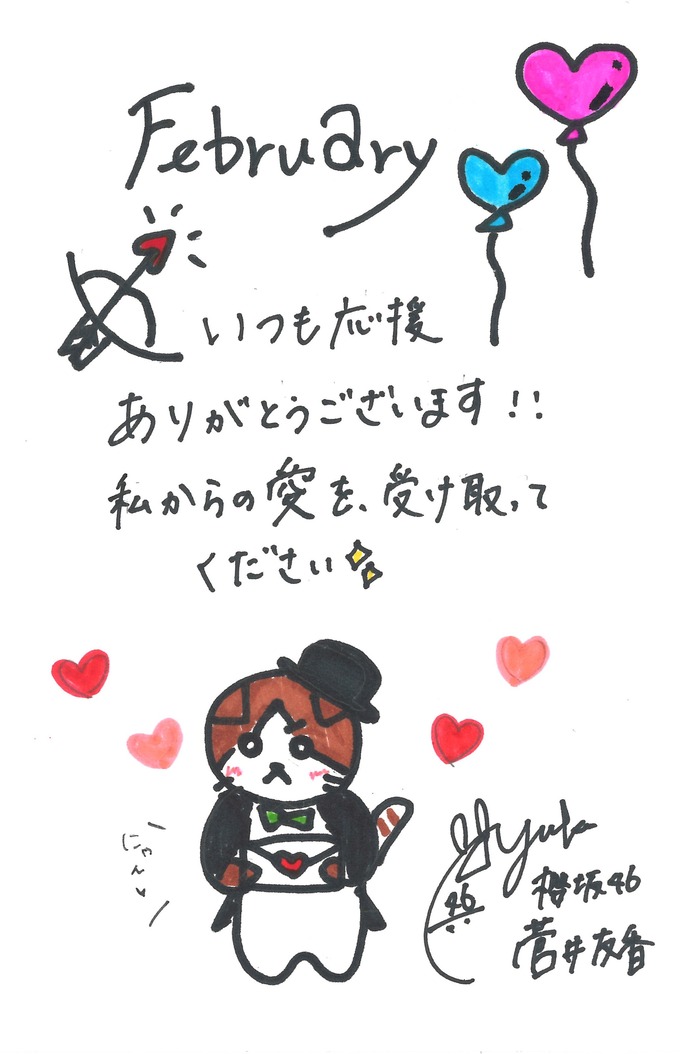 February
いつも応援
ありがとうございます!!
私からの愛を、受け取って
ください
にゃ〜
Yuuka
46
櫻坂46
菅井友香